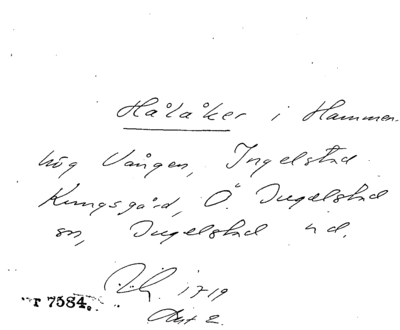 Hålåker i Hammen-
hög Vången, Ingelstad
Kungsgård, Ö. Ingelstad
sn, Ingelstad hd.
1719
r 7584. Akt 2.